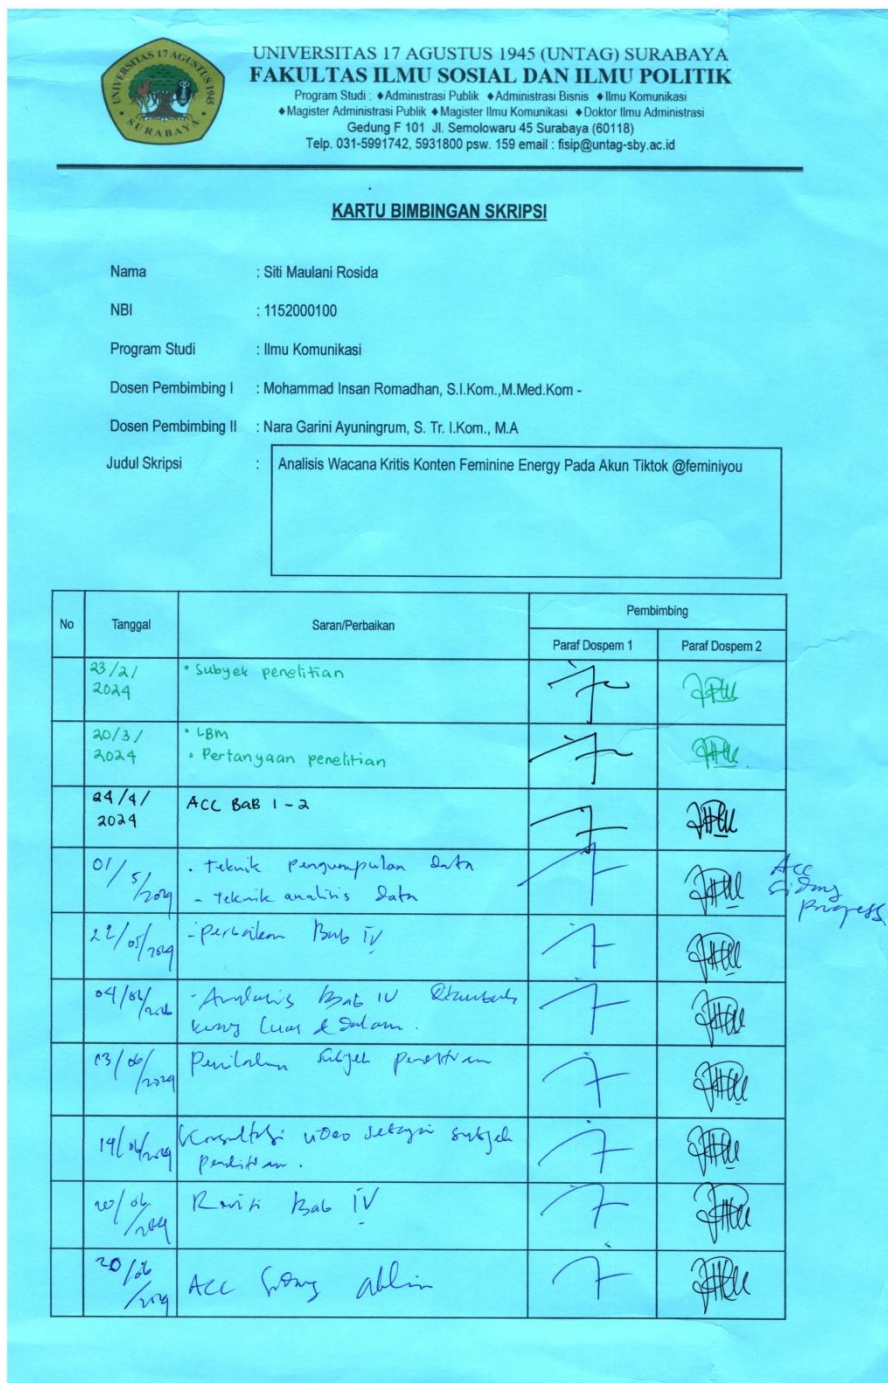 UNIVERSITAS 17 AGUSTUS 1945
SURABAYA
UNIVERSITAS 17 AGUSTUS 1945 (UNTAG) SURABAYA
FAKULTAS ILMU SOSIAL DAN ILMU POLITIK
Program Studi : ♦Administrasi Publik ♦Administrasi Bisnis ♦Ilmu Komunikasi
♦Magister Administrasi Publik ♦Magister Ilmu Komunikasi ♦Doktor Ilmu Administrasi
Gedung F 101 Jl. Semolowaru 45 Surabaya (60118)
Telp. 031-5991742, 5931800 psw. 159 email : fisip@untag-sby.ac.id
KARTU BIMBINGAN SKRIPSI
Nama : Siti Maulani Rosida
NBI : 1152000100
Program Studi : Ilmu Komunikasi
Dosen Pembimbing I : Mohammad Insan Romadhan, S.I.Kom.,M.Med.Kom -
Dosen Pembimbing II : Nara Garini Ayuningrum, S. Tr. I.Kom., M.A
Judul Skripsi : Analisis Wacana Kritis Konten Feminine Energy Pada Akun Tiktok @feminiyou
No Tanggal Saran/Perbaikan Pembimbing
Paraf Dospem 1 Paraf Dospem 2
23/2/ • Subyek penelitian
2024
20/3/ • LBM
2024 • Pertanyaan penelitian
24/4/ ACC BAB 1-2
2024
01/5/2024 • Teknik pengumpulan data
- Teknik analisis data
Acc
Sidang
progress
22/05/2024 - perbaikan Bab IV
04/06/ - Analisis Bab IV
kurang luas & dalam.
13/06/2024 subjek penelitian
19/06/2024 Konsultasi video sebagai subjek
penelitian.
20/06/2024 Revisi Bab IV
20/06/2024 ACC Sidang akhir